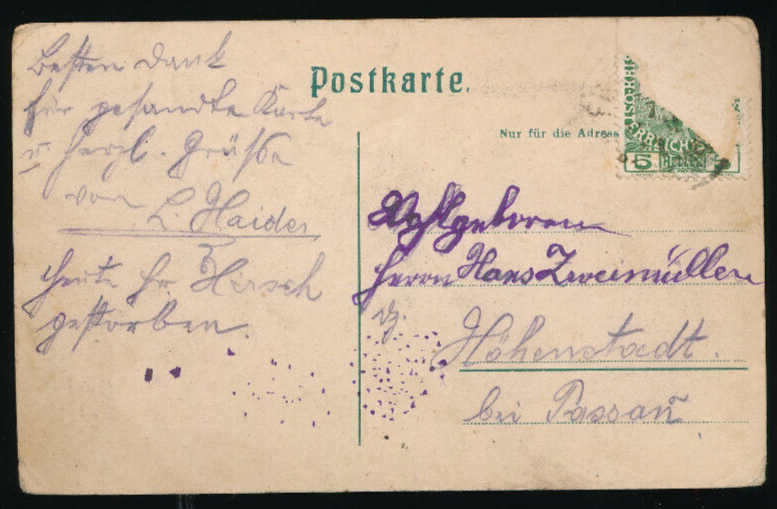 Besten Dank
für gesandte Karte
u herzl. Grüße
von L. Haider
heute Fr. Hirsch
gestorben.
Postkarte.
Nur für die Adress
5
Wohlgeboren
Herrn Hans Zweimüller
Höhenstadt.
bei Passau